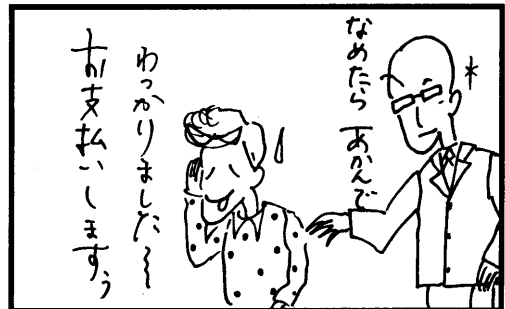 なめたら
あかんで
わっかりました〜
お支払いしますぅ